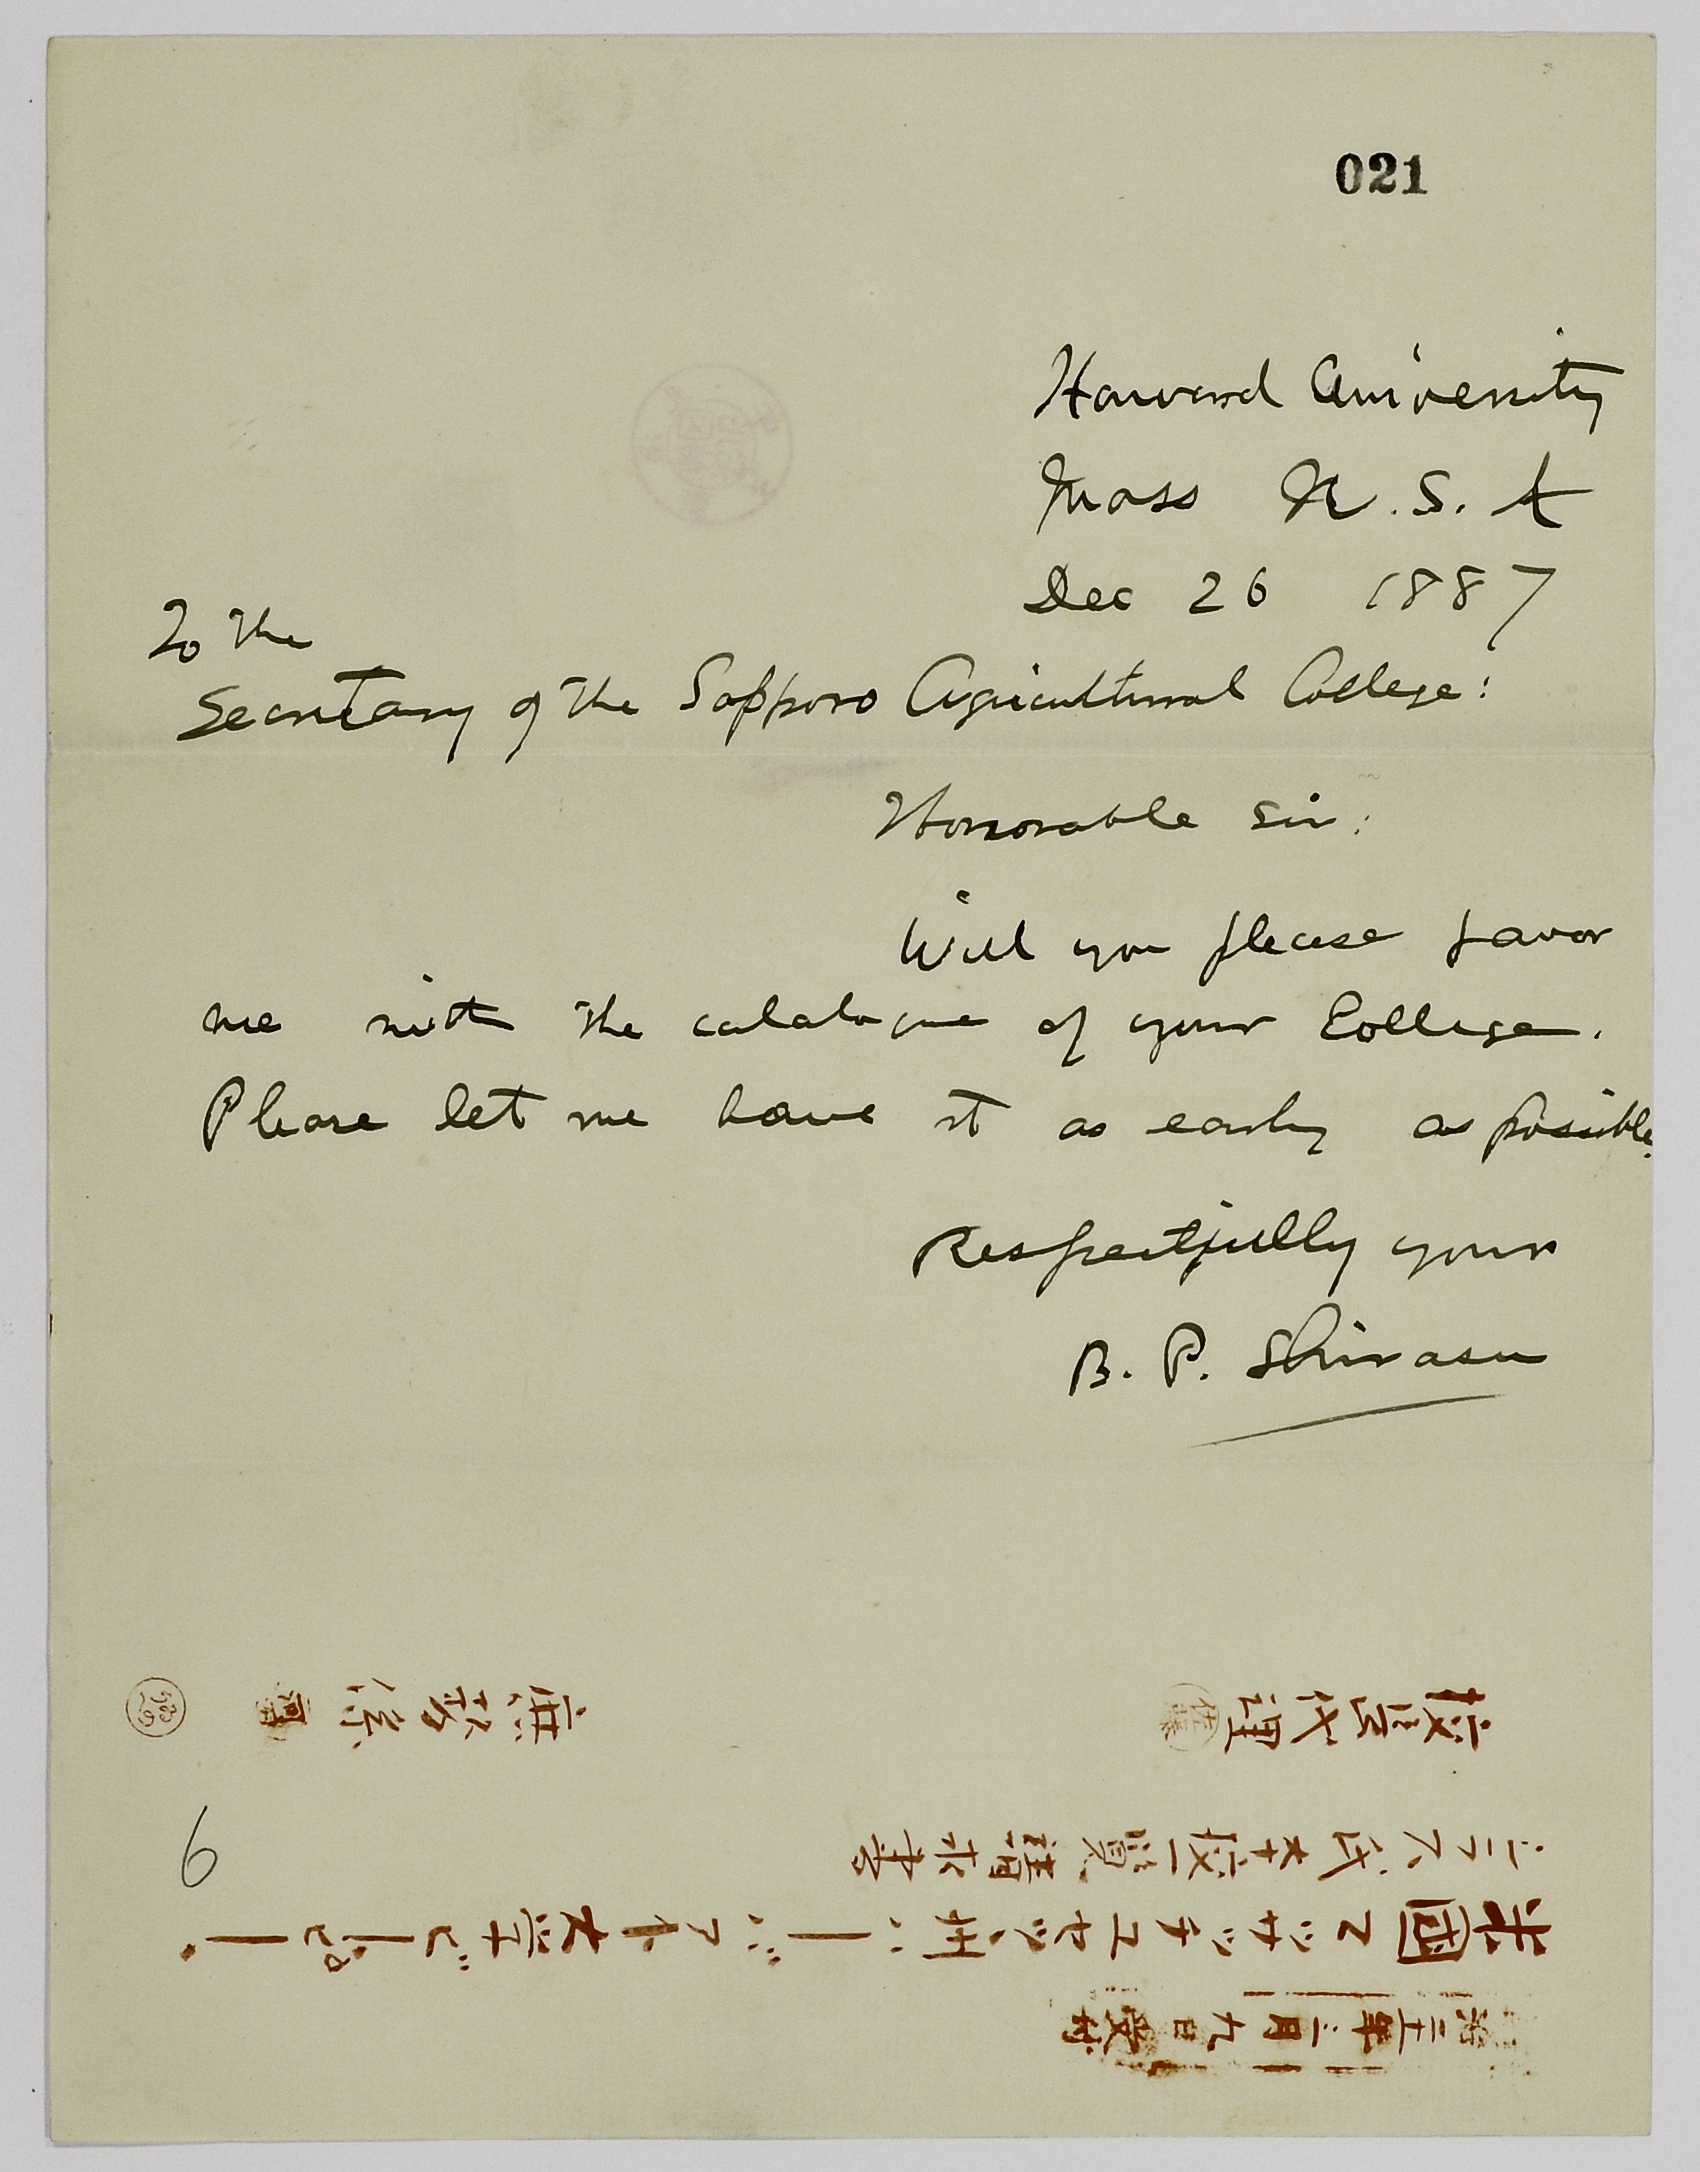 021
Harvard University
Mass U.S.A
Dec 26 1887
To the
Secretary of the Sapporo Agricultural College:
Honorable Sir:
Will you please favor
me with the catalogue of your College.
Please let me have it as early as possible.
Respectfully yours
B. P. Shirasu
治二十一年二月九日受付
米國マツサツチユセツ州ハーバアート大学ビーピー
シラス氏本校一覧請求書
校長代理
庶務係
6